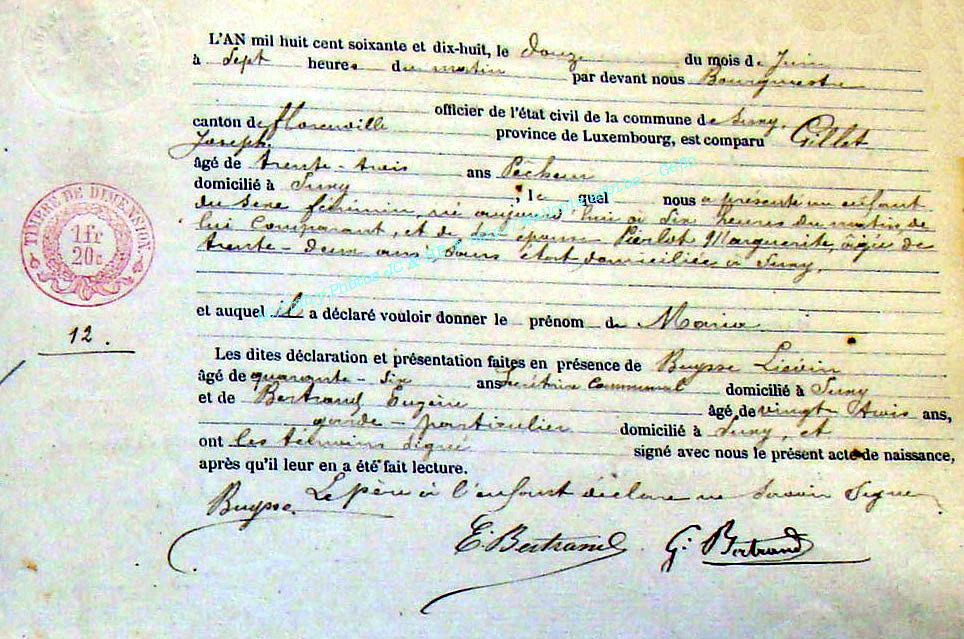 L'AN mil huit cent soixante et dix-huit, le douze du mois de Juin
à sept heures du matin par devant nous Bourgmestre
officier de l'état civil de la commune de Suny,
canton de Florenville province de Luxembourg, est comparu Gillet
Joseph.
âgé de trente-trois ans Pêcheur
domicilié à Suny, lequel nous a présenté un enfant
du sexe féminin, né aujourd'hui à six heures du matin, de
lui comparant, et de son épouse Pierlot Marguerite, âgée de
trente-deux ans sans état domiciliée à Suny,
et auquel il a déclaré vouloir donner le prénom de Maria
TIMBRE DE DIMENSION
1 fr
20c
12.
Les dites déclaration et présentation faites en présence de Buysse Liévin
âgé de quarante-six ans Secrétaire Communal domicilié à Suny
et de Bertrand Eugène âgé de vingt trois ans,
garde-particulier domicilié à Suny, et
ont les témoins signé signé avec nous le présent acte de naissance,
après qu'il leur en a été fait lecture.
Le père à l'enfant déclare ne savoir signer
Buysse.
E. Bertrand G. Bertrand